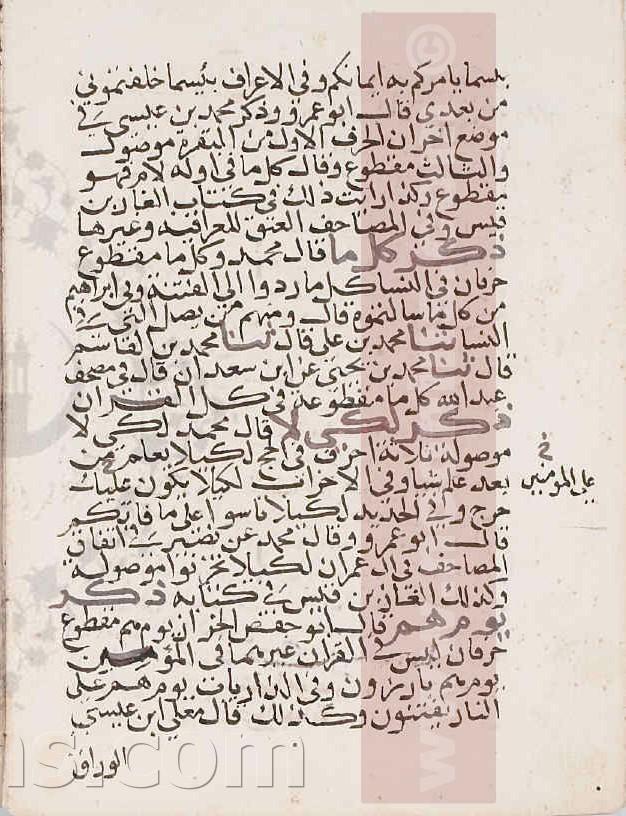 بيسما يامركم به ايمانكم وفي الاعراف بيسما خلفتموني
من بعدي قال ابو عمرو وذكر محمد بن عيسى في
موضع اخر ان الحرف الاول من البقره موصول
والثالث مقطوع وقال كل ما في اوله لام فهو
مقطوع وكذا رايت ذلك في كتاب الغاز بن
قيس وفي المصاحف العتق العراقيه وغيرها
ذكر كل ما قال محمد وكل ما مقطوع
حرفان في النسا كل ما ردوا الى الفتنه وفي ابراهيم
من كل ما سالتموه قال ومنهم من يصل التي في
النسا ثنا محمد بن علي قال ثنا محمد بن القاسم
قال ثنا محمد بن يحيى عن ابن سعدان قال في مصحف
عبد الله كل ما مقطوعه في كل القران
ذكر لكي لا قال محمد لكي لا
موصوله ثلاثة احرف في الحج لكيلا يعلم من
بعد علم شيا وفي الاحزاب لكيلا يكون عليك
حرج وفي الحديد لكيلا تاسوا على ما فاتكم
قال ابو عمرو وقال محمد عن نصير في اتفاق
المصاحف في ال عمران لكيلا تحزنوا موصوله
وكذلك الغاز بن قيس في كتابه ذكر
يوم هم قال ابو حفص الخزاز يوم هم مقطوع
حرفان ليس في القران غيرهما في المؤمن
يوم هم بارزون وفي الذاريات يوم هم على
النار يفتنون وكذلك قال معلى ابن عيسى
الوراق
على المؤمنين
ns.com